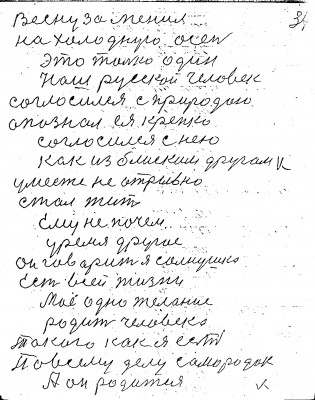 34
Весну за менил
на холодную осен
Это толко один
Наш русской человек
согласился с природою
опознал ся крепко
согласился с нею
как из блиским другам
уместе не отривно
стал жит
Ему не почем
уремя другое
он говарит я солнушко
Ест всей жизни
Моё одно желание
родит человека
Такого как я ест
По всему делу самородак
А он родится